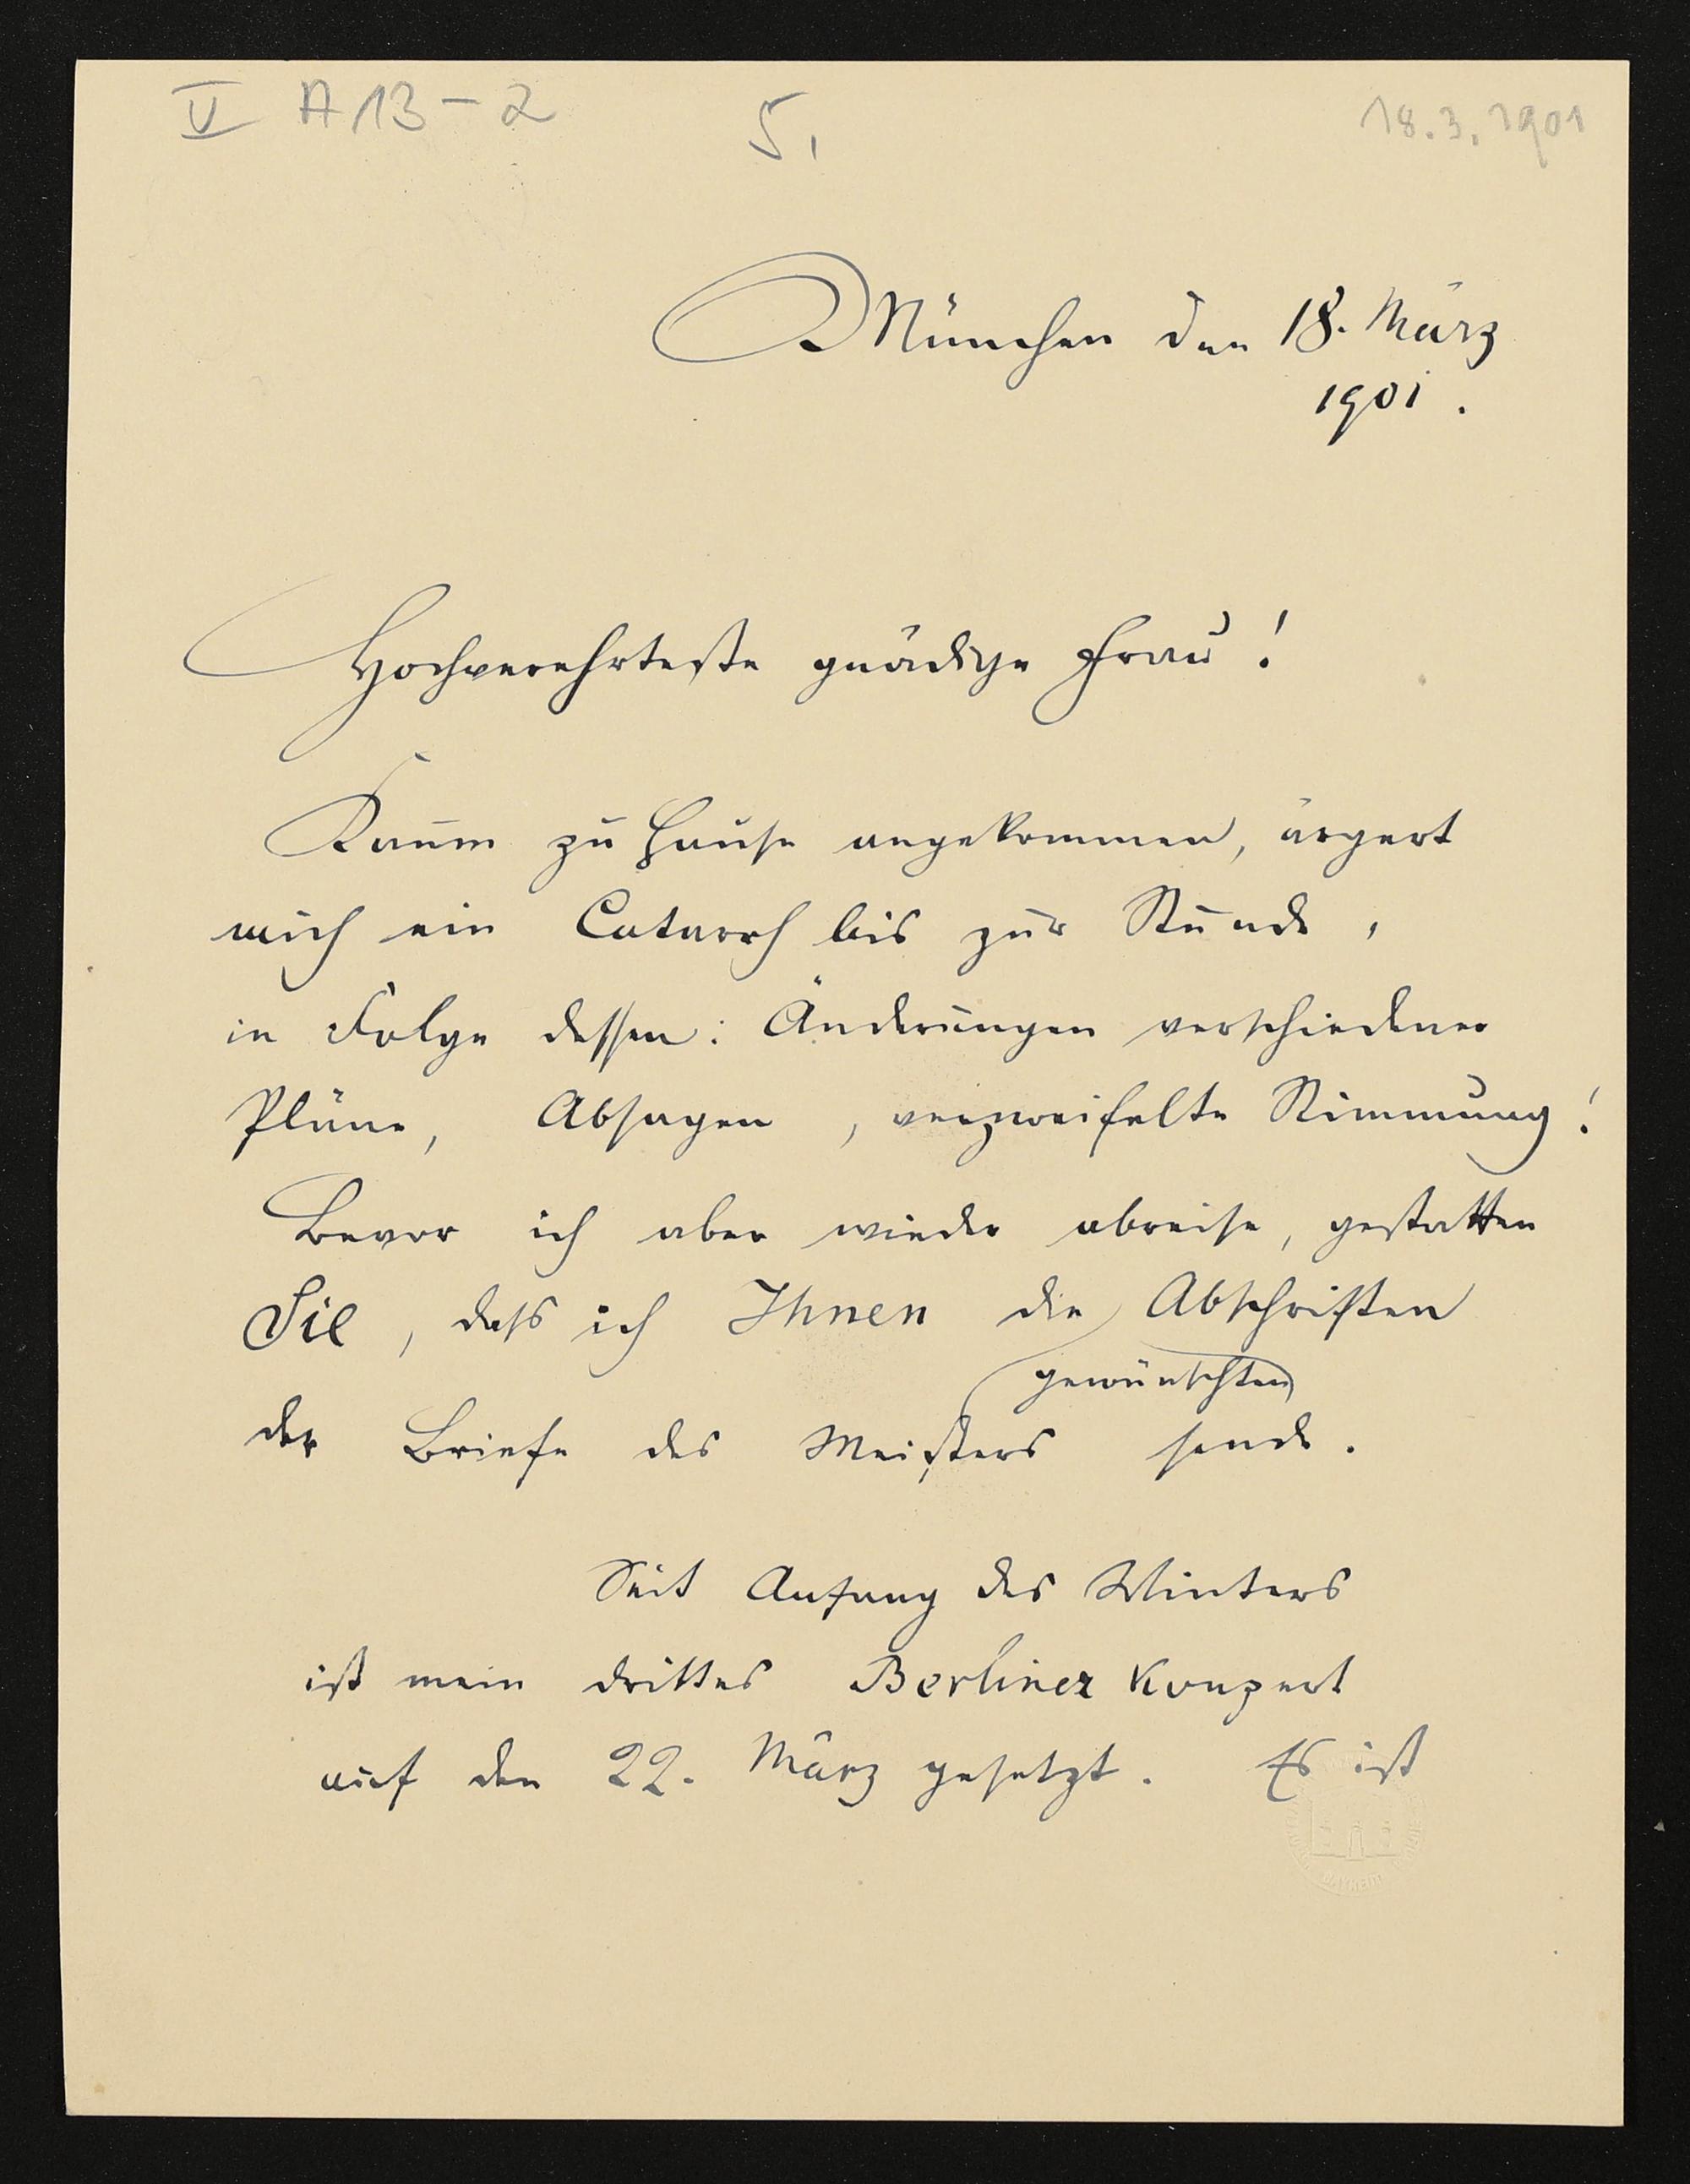 V A 13 - 2
5.
18.3.1901
München den 18. März
1901.
Hochverehrteste gnädige Frau!
Kaum zu Hause angekommen, ärgert
mich ein Catarrh bis zur Stunde,
in Folge dessen: Änderungen verschiedener
Pläne, Absagen, verzweifelte Stimmung!
Bevor ich aber wieder abreise, gestatten
Sie, dass ich Ihnen die gewünschten Abschriften
der Briefe des Meisters sende.
Seit Anfang des Winters
ist mein drittes Berliner Konzert
auf den 22. März gesetzt. Es ist